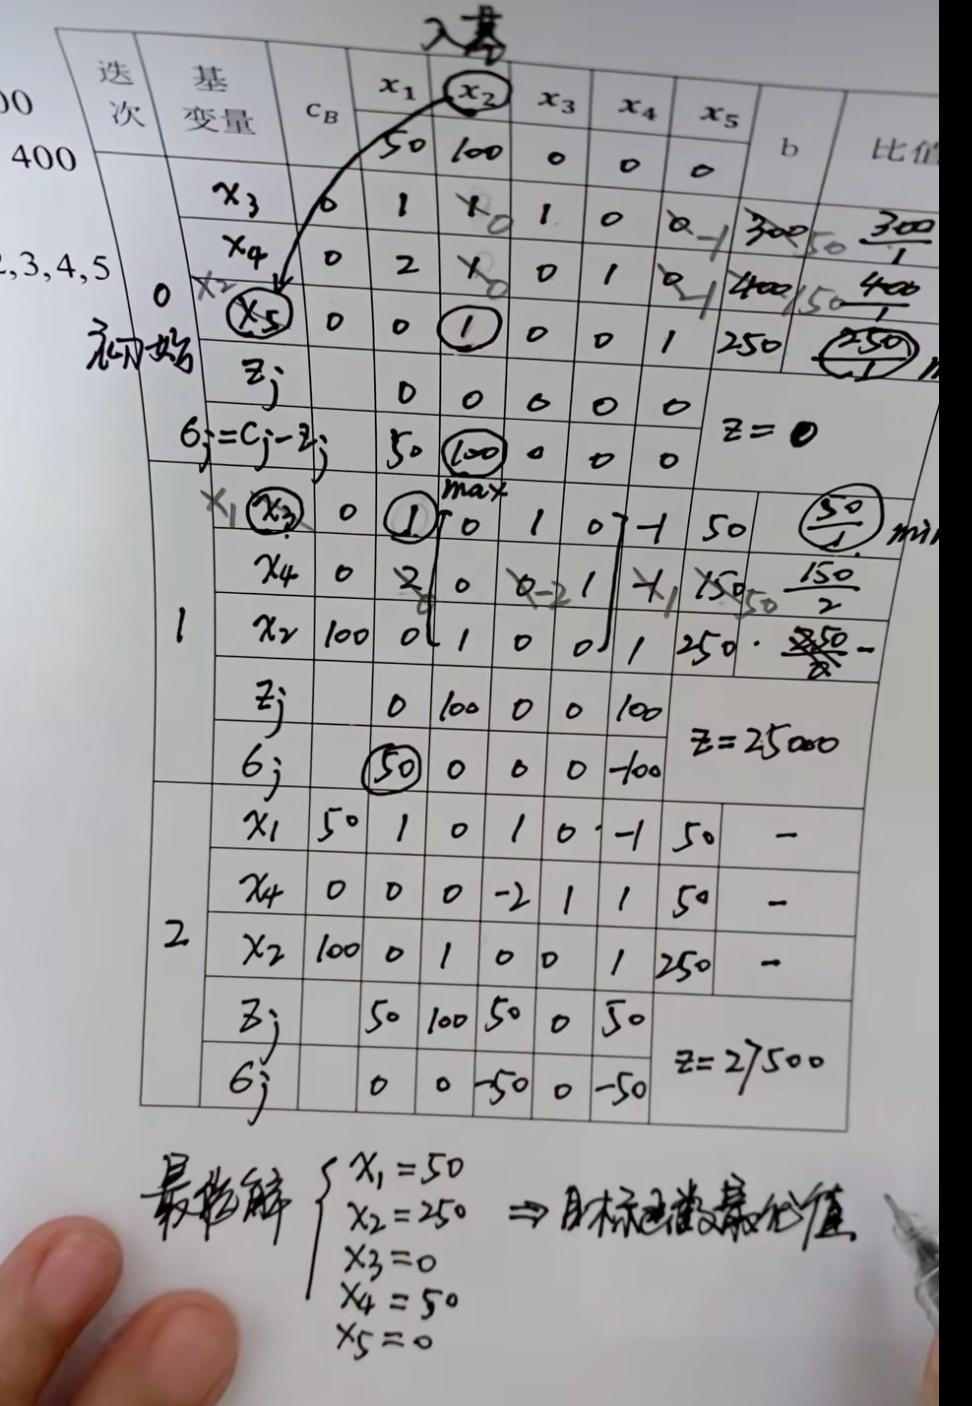 入基
迭次 基变量 c_B x₁ x₂ x₃ x₄ x₅ b 比值
50 100 0 0 0
00
400
2,3,4,5
x₃ 0 1 1 0 1 0 0 -1 300 50 300/1
x₄ 0 2 1 0 0 1 0 -1 400 150 400/1
0 初始 x₂ x₅ 0 0 1 0 0 1 250 250/1
zⱼ 0 0 0 0 0 z=0
6ⱼ=Cⱼ-zⱼ 50 100 0 0 0
max
x₁ x₃ 0 1 0 1 0 -1 50 50/1 min
x₄ 0 2 0 0 0 -2 1 -1 1 150 50 150/2
1 x₂ 100 0 1 0 0 1 250 · 250/0 -
zⱼ 0 100 0 0 100 z=25000
6ⱼ 50 0 0 0 -100
x₁ 50 1 0 1 0 · -1 50 -
x₄ 0 0 0 -2 1 1 50 -
2 x₂ 100 0 1 0 0 1 250 -
zⱼ 50 100 50 0 50 z=27500
6ⱼ 0 0 -50 0 -50
最优解 { x₁=50
x₂=250 ⇒ 目标函数最优值
x₃=0
x₄=50
x₅=0